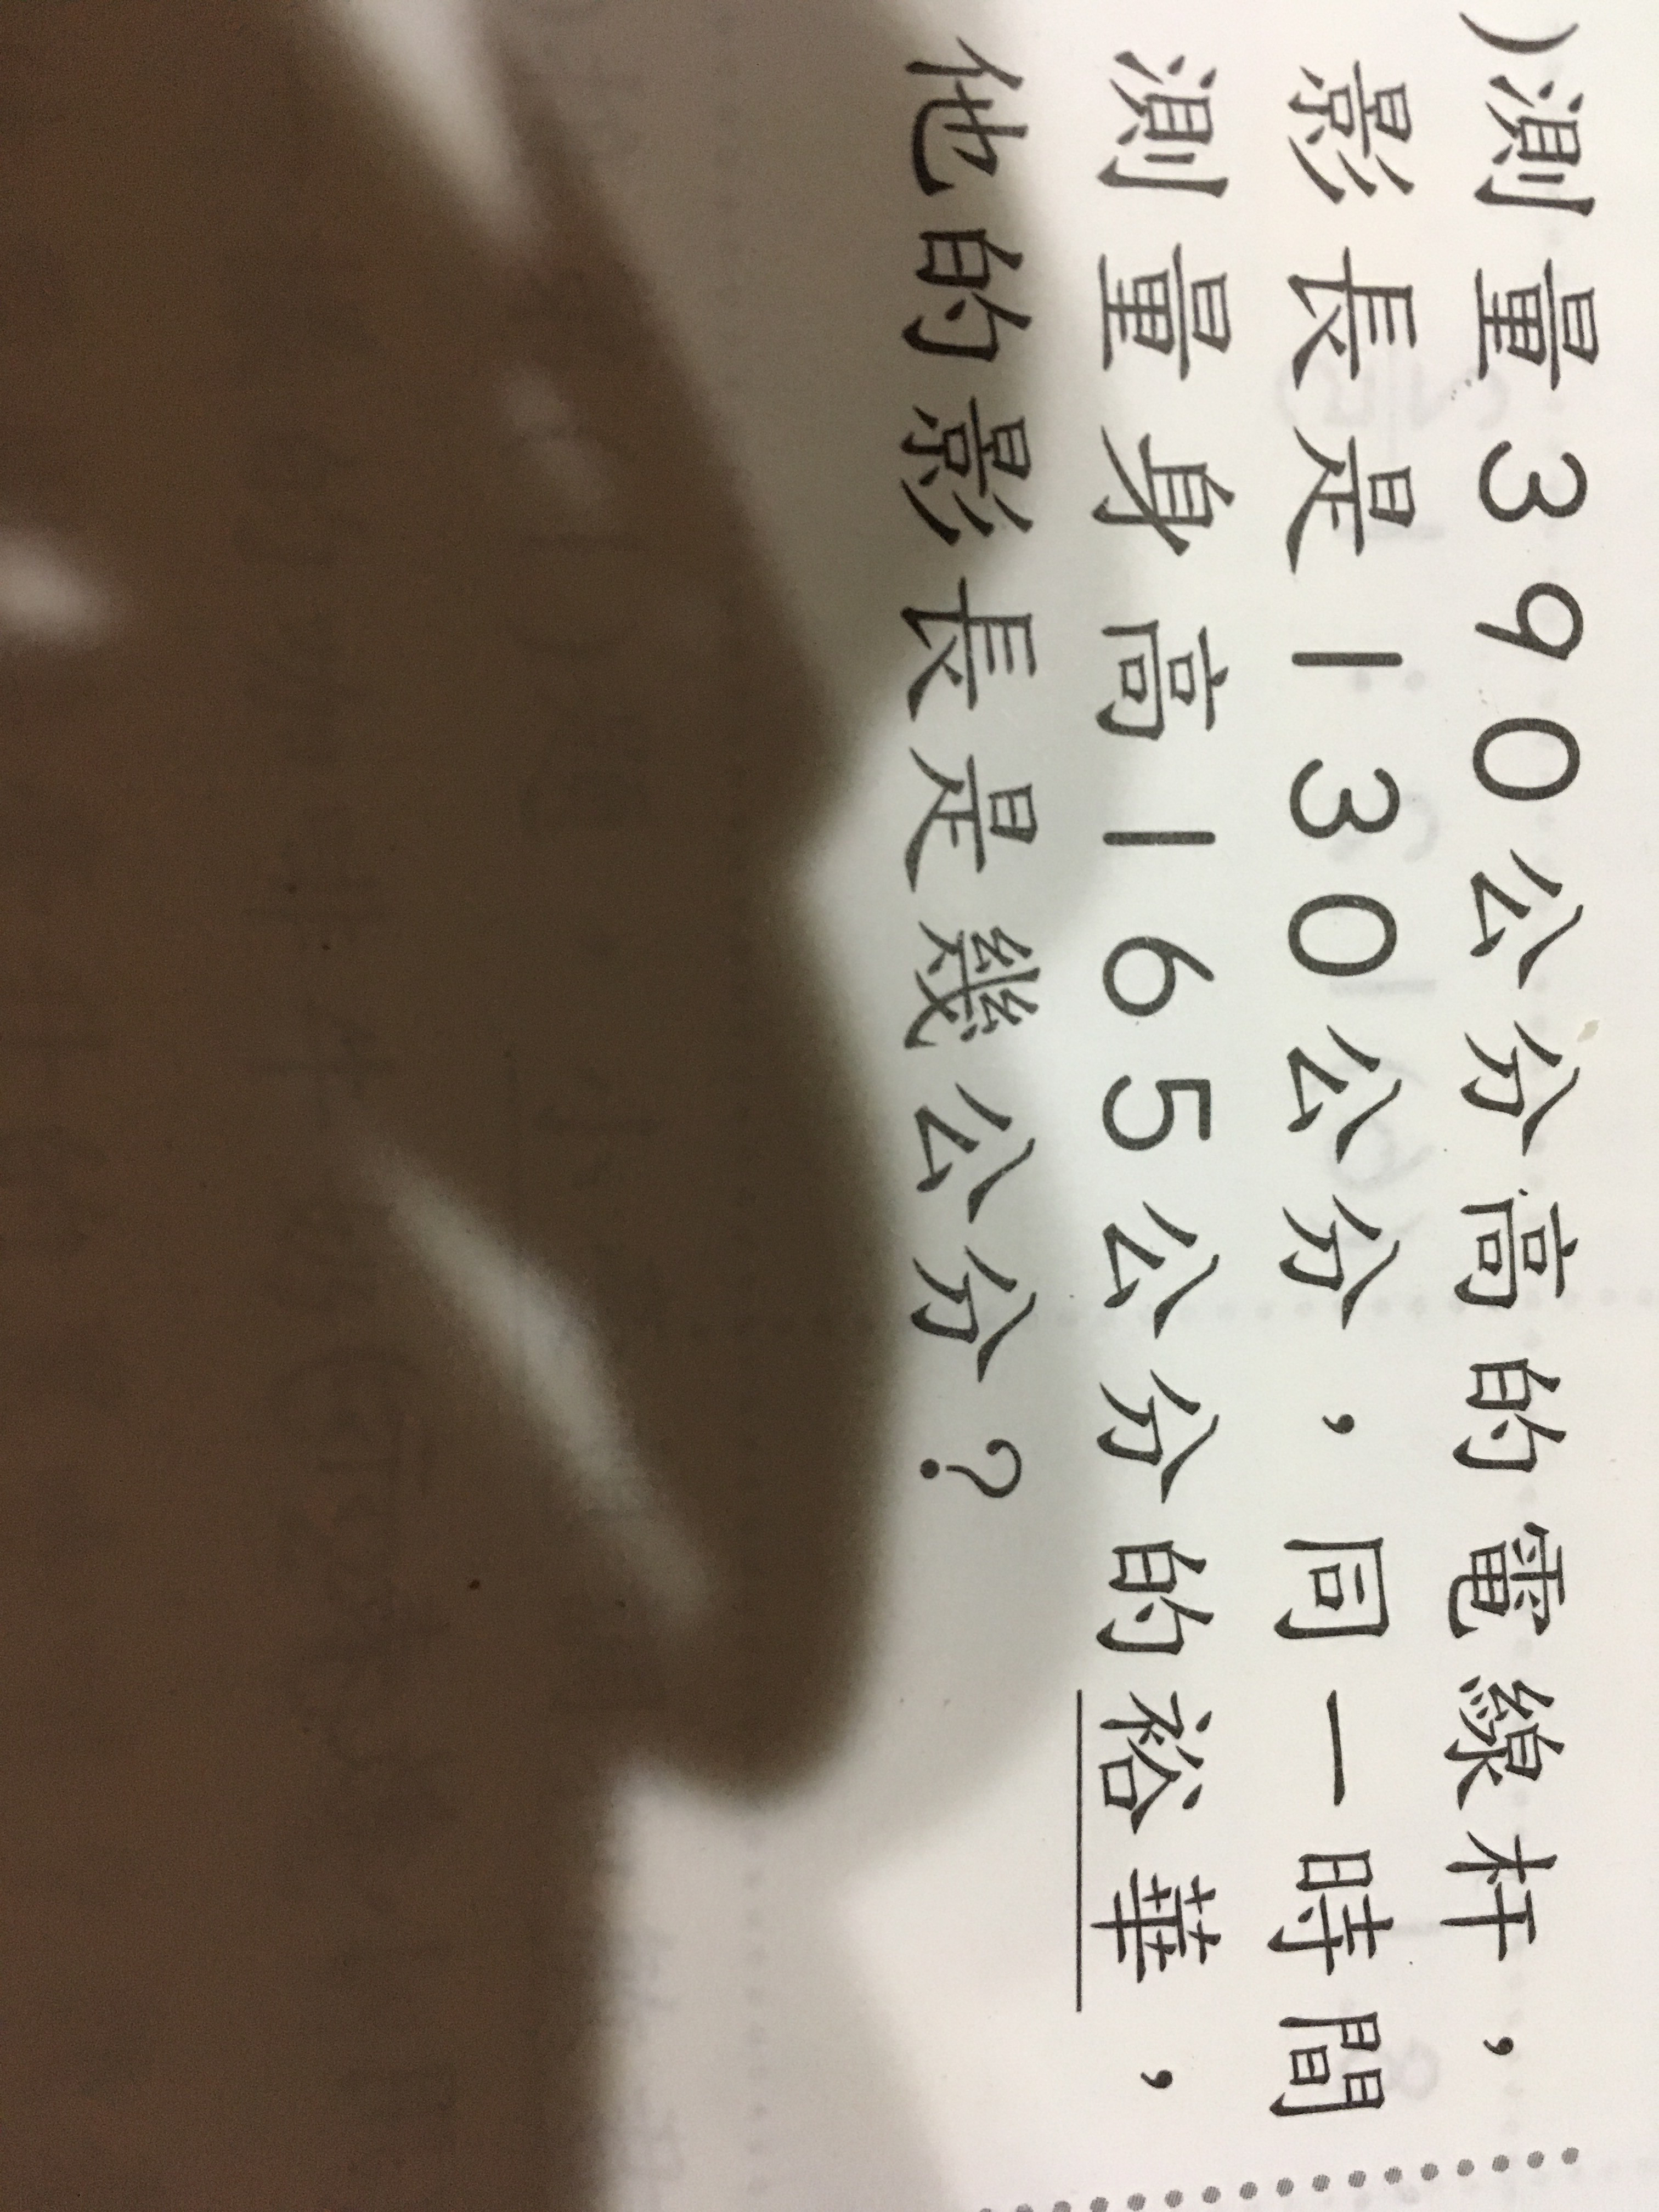 )測量390公分高的電線杆，
影長是130公分，同一時間
測量身高165公分的裕華，
他的影長是幾公分？